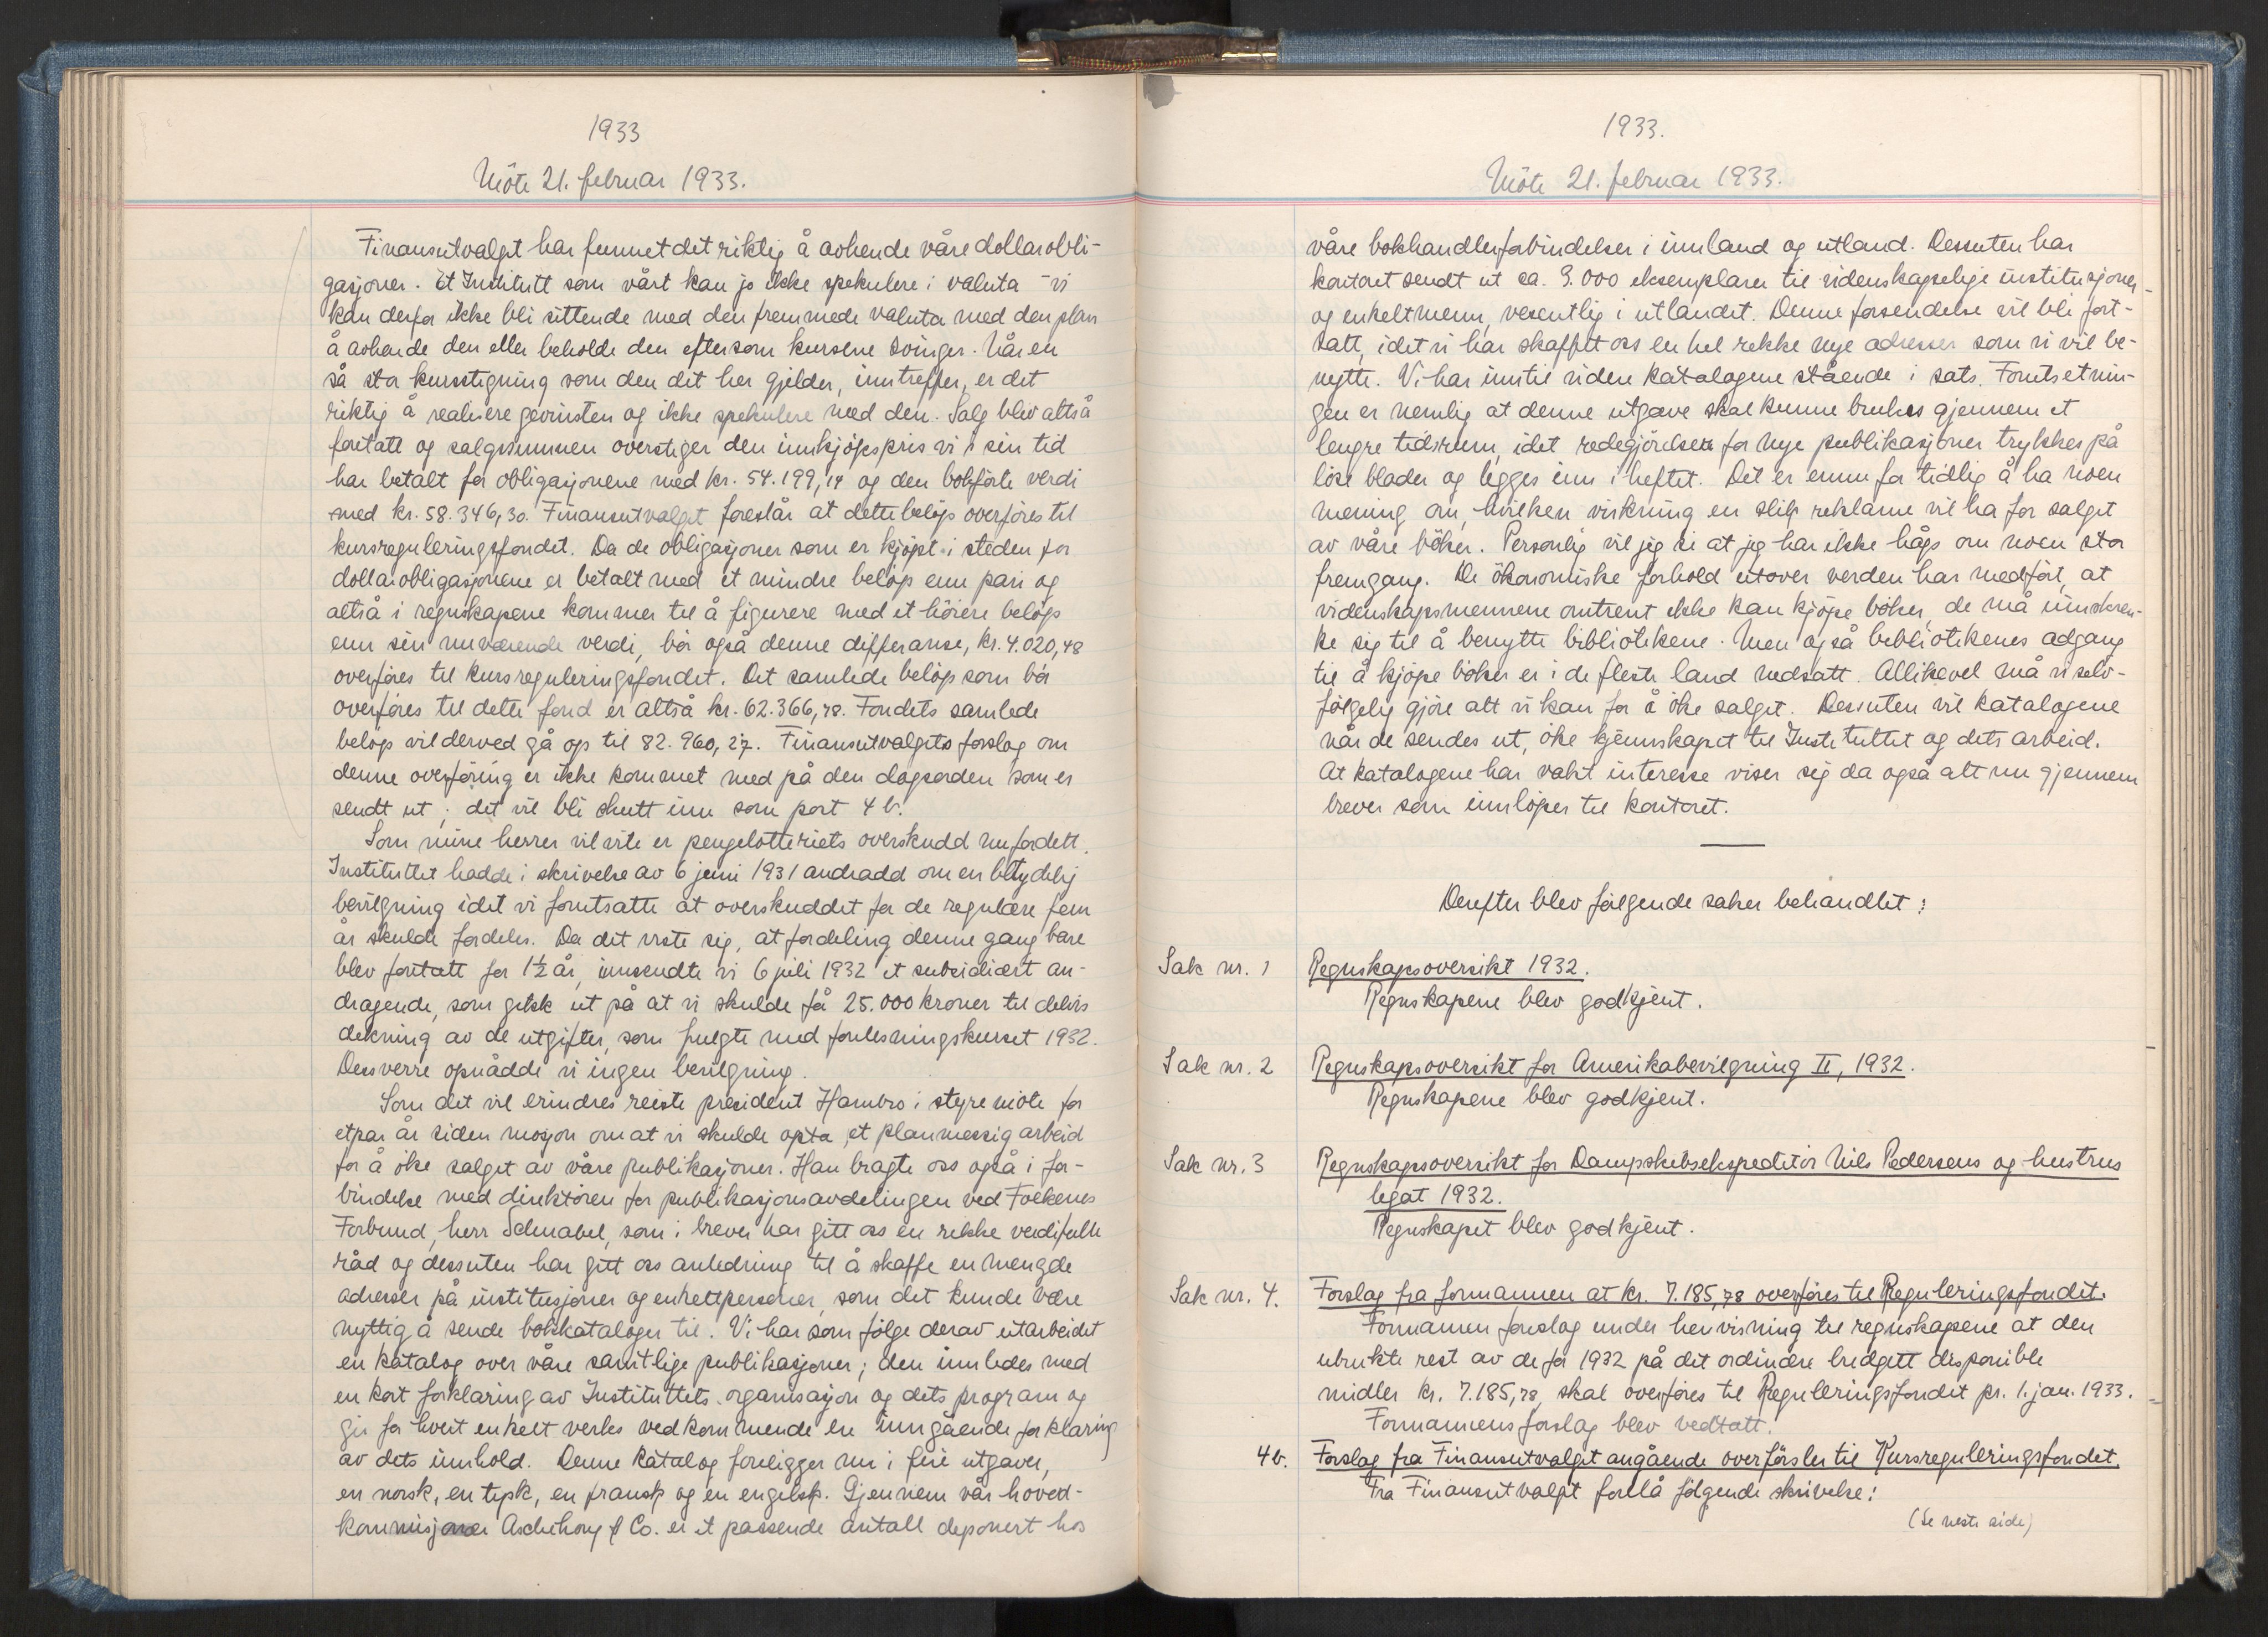 1933
Möte 21. februar 1933.
Finansutvalget har funnet det riktig å avhende våre dollarobli-
gasjoner. Et Institutt som vårt kan jo ikke spekulere i valuta - vi
kan derfor ikke bli sittende med den fremmede valuta med den plan
å avhende den eller beholde den eftersom kursene svinger. Når en
så stor kursstigning som den det her gjelder, inntreffer, er det
riktig å realisere gevinsten og ikke spekulere med den. Salg blev altså
foretatt og salgssummen overstiger den innkjöpspris vi i sin tid
har betalt for obligasjonene med kr. 54.199,14 og den bokförte verdi
med kr. 58.346,30. Finansutvalget foreslår at dette belöp overföres til
kursreguleringsfondet. Da de obligasjoner som er kjöpt i steden for
dollarobligasjonene er betalt med et mindre belöp enn pari og
altså i regnskapene kommer til å figurere med et höiere belöp
enn sin nuværende verdi, bör også denne differanse, kr. 4.020,48
overföres til kursreguleringsfondet. Det samlede belöp som bör
overföres til dette fond er altså kr. 62.366,78. Fondets samlede
belöp vil derved gå op til 82.960,27. Finansutvalgets forslag om
denne overföring er ikke kommet med på den dagsorden som er
sendt ut; det vil bli skutt inn som post 4 b.
Som mine herrer vil vite er pengelotteriets overskudd nu fordelt.
Instituttet hadde i skrivelse av 6 juni 1931 andradd om en betydelig
bevilgning idet vi forutsatte at overskuddet for de regulære fem
år skulde fordeles. Da det viste sig, at fordeling denne gang bare
blev foretatt for 1½ år, innsendte vi 6 juli 1932 et subsidiært an-
dragende, som gikk ut på at vi skulde få 25.000 kroner til delvis
dekning av de utgifter, som fulgte med forelesningskurset 1932.
Dessverre opnådde vi ingen bevilgning.
Som det vil erindres reiste president Hambro i styremöte for
etpar år siden mosjon om at vi skulde opta et planmessig arbeid
for å öke salget av våre publikasjoner. Han bragte oss også i for-
bindelse med direktören for publikasjonsavdelingen ved Folkenes
Forbund, herr Schnabel, som i brever har gitt oss en rekke verdifulle
råd og dessuten har gitt oss anledning til å skaffe en mengde
adresser på institusjoner og enkeltpersoner, som det kunde være
nyttig å sende bokkataloger til. Vi har som fölge derav utarbeidet
en katalog over våre samtlige publikasjoner; den innledes med
en kort forklaring av Instituttets organisasjon og dets program og
gir for hvert enkelt verks vedkommende en inngående forklaring
av dets innhold. Denne katalog foreligger nu i fire utgaver,
en norsk, en tysk, en fransk og en engelsk. Gjennem vår hoved-
kommisjonær Aschehoug & Co. er et passende antall deponert hos
1933.
Möte 21. februar 1933.
våre bokhandlerforbindelser i innland og utland. Dessuten har
kontoret sendt ut ca. 3.000 eksemplarer til videnskapelige institusjoner
og enkeltmenn, vesentlig i utlandet. Denne forsendelse vil bli fort-
satt, idet vi har skaffet oss en hel rekke nye adresser som vi vil be-
nytte. Vi har inntil videre katalogene stående i sats. Forutsetnin-
gen er nemlig at denne utgave skal kunne brukes gjennem et
lengre tidsrum, idet redegjörelser for nye publikasjoner trykkes på
löse blader og legges inn i heftet. Det er ennu for tidlig å ha noen
mening om, hvilken virkning en slik reklame vil ha for salget
av våre böker. Personlig vil jeg si at jeg har ikke håp om noen stor
fremgang. De ökonomiske forhold utover verden har medfört, at
videnskapsmennene omtrent ikke kan kjöpe böker, de må innskren-
ke sig til å benytte bibliotekene. Men også bibliotekenes adgang
til å kjöpe böker er i de fleste land nedsatt. Allikevel må vi selv-
fölgelig gjöre alt vi kan for å öke salget. Dessuten vil katalogene
når de sendes ut, öke kjennskapet til Instituttet og dets arbeid.
At katalogene har vakt interesse viser sig da også alt nu gjennem
brever som innlöper til kontoret.
Derefter blev fölgende saker behandlet:
Sak nr. 1 Regnskapsoversikt 1932.
Regnskapene blev godkjent.
Sak nr. 2 Regnskapsoversikt for Amerikabevilgning II, 1932.
Regnskapene blev godkjent.
Sak nr. 3 Regnskapsoversikt for Dampskibsekspeditör Nils Pedersens og hustrus
legat 1932.
Regnskapet blev godkjent.
Sak nr. 4. Forslag fra formannen at kr. 7.185,78 overföres til Reguleringsfondet.
Formannen foreslog under henvisning til regnskapene at den
ubrukte rest av de for 1932 på det ordinære budgett disponible
midler kr. 7.185,78, skal overföres til Reguleringsfondet pr. 1. jan. 1933.
Formannens forslag blev vedtatt.
4b. Forslag fra Finansutvalget angående overförsler til Kursreguleringsfondet.
Fra Finansutvalget forelå fölgende skrivelse:
(Se neste side)